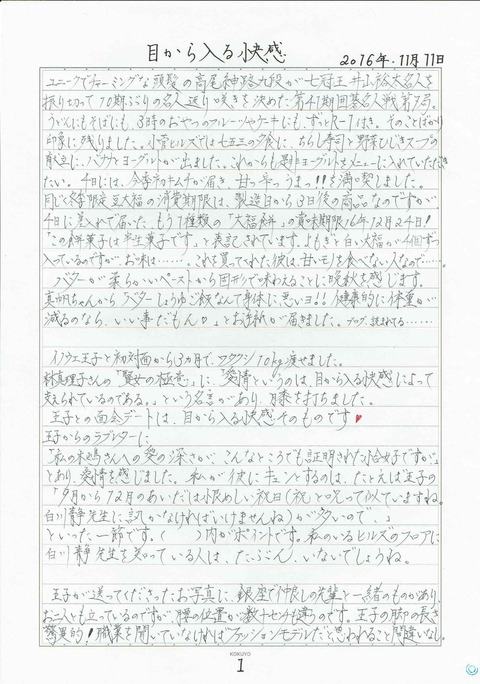 目から入る快感
2016年.11月11日
ユニークでチャーミングな頭髪の高尾紳路九段が七冠王井山裕太名人を
振り切って10期ぶりの名人返り咲きを決めた第41期囲碁名人戦第7局。
うどんにもそばにも、3時のおやつのフルーツやケーキにも、ずっとR-1付き。そのことばかり
印象に残りました。小菅ヒルズでは七五三の夕食に、ちらし寿司と野菜ひじきスープの
献立に、バナナヨーグルトが出ました。これからも是非ヨーグルトをメニューに入れていただき
たい。4日には、今季初キムチが届き、甘っ辛っうまっ!!を満喫しました。
同じく冬季限定豆大福の消費期限は、製造日から3日後の商品なのですが
4日に差入れで届いた、もう1種類の「大福餅」の賞味期限16年12月24日!
「この餅菓子は半生菓子です。」と表記されています。よもぎと白い大福が4個ずつ
入っているのですが、お味は……。これを買ってくれた彼は、甘いモノを食べない人なので……。
バターが柔らかいペーストから固形で味わえることに晩秋を感じます。
真帆ちゃんから「バターしょうゆご飯なんて身体に悪いヨ!! 健康的に体重が
減るのなら、いい事だもん♡」とお手紙が届きました。ブログ、読まれてる……。
イノウエ王子と初対面から3カ月で、ワタクシ10kg痩せました。
林真理子さんの「賢女の極意」に、「愛情というのは、目から入る快感によって
支えられているのである。」という名言があり、膝を打ちました。
王子との面会デートは、目から入る快感そのものです♥
王子からのラブレターに
「私の木嶋さんへの愛の深さが、こんなところでも証明された恰好ですが」
とあり、愛情を感じました。私が彼にキュンとするのは、たとえば王子の
「9月から12月のあいだは小恨めしい祝日(祝と呪って似ていますね。
白川静先生に訊かなければいけませんね)が多いので、」
といった一節です。( )内がポイントです。私のいるヒルズのフロアに
白川静先生を知っている人は、たぶん、いないでしょうね。
王子が送ってくださったお写真に、銀座で仲良しの先輩と一緒のものがあり、
お二人とも立っているのですが腰の位置が数十センチも違うのです。王子の脚の長さ
驚異的!職業を聞いていなければファッションモデルだと思われること間違いなし。
KOKUYO
1